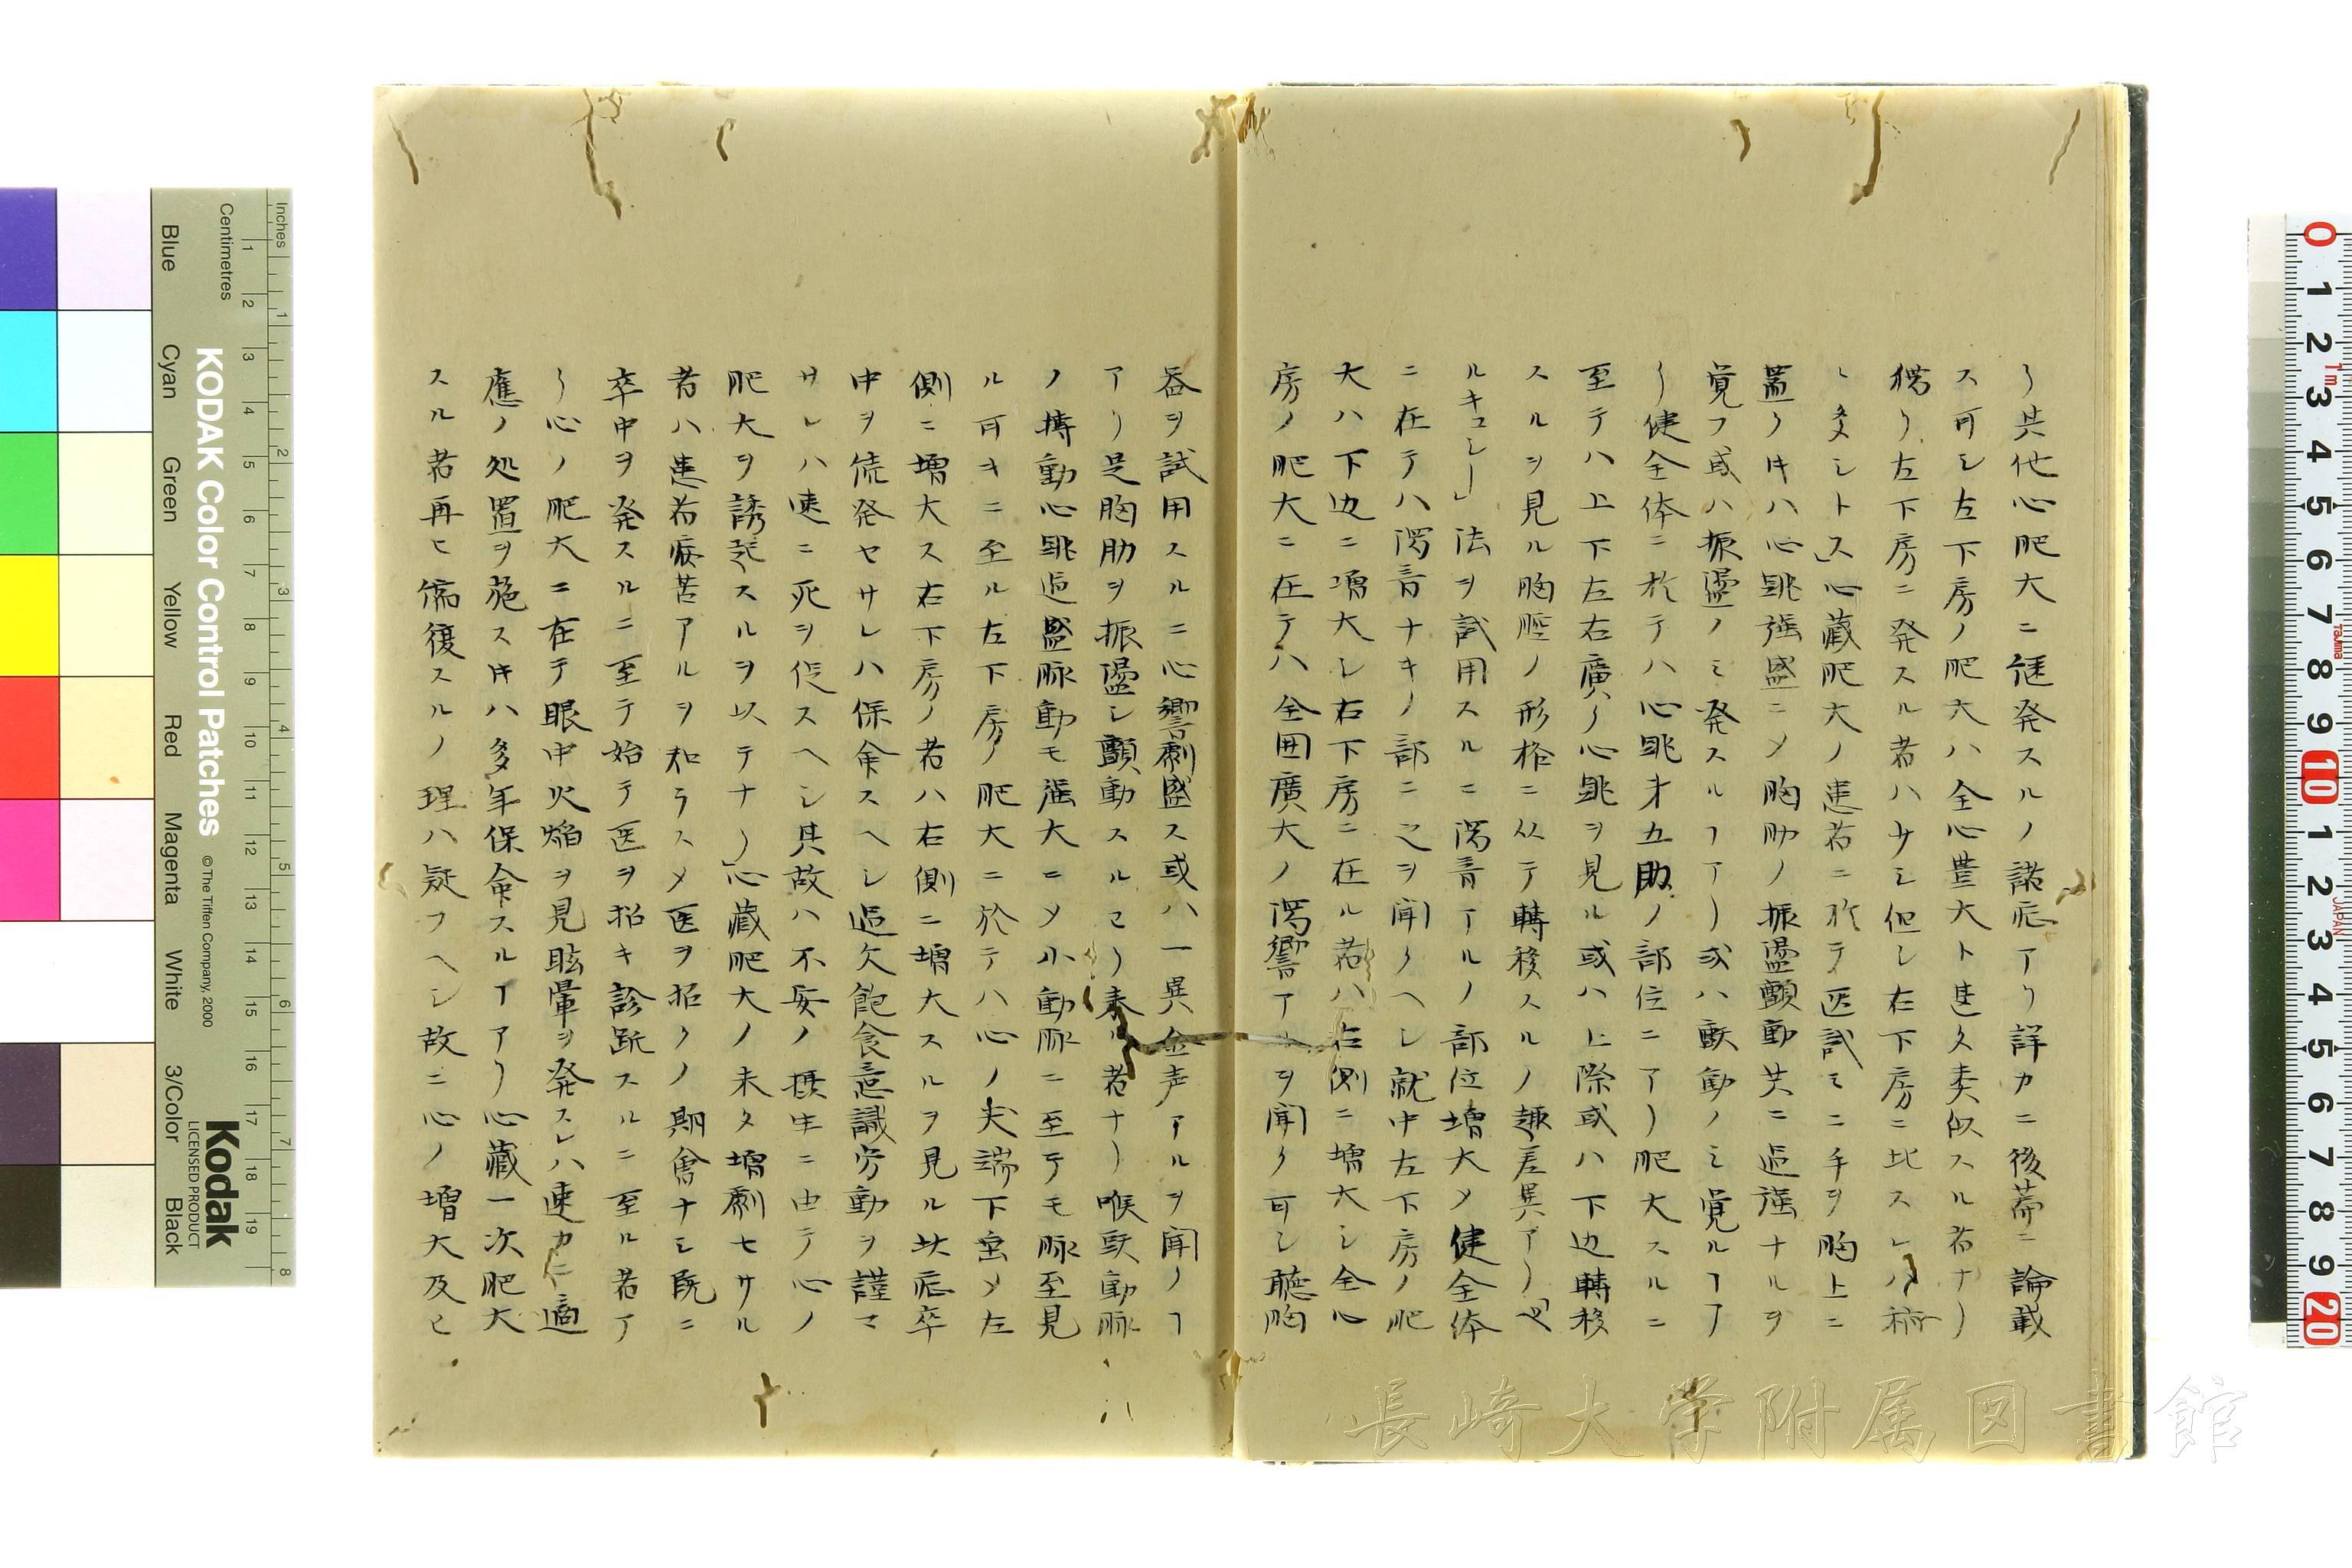 ク其他心肥大ニ継発スルノ諸症アリ詳カニ後等ニ論載
ス可シ左下房ノ肥大ハ全心豊大ト甚タ類似スル者ナリ
独リ左下房ニ発スル者ハ少シ但シ右下房ニ比スレハ稍
々多シトス」心臓肥大ノ患者ニ於テ医試ミニ手ヲ胸上ニ
置クキハ心跳強盛ニメ胸肋ノ振盪顫動共ニ過強ナルヲ
覚フ或ハ振盪ノミ発スルヿアリ或ハ顫動ノミ覚ルヿア
リ健全体ニ於テハ心跳才五肋ノ部位ニアリ肥大スルニ
至テハ上下左右廣ク心跳ヲ見ル或ハ上際或ハ下辺轉移
スルヲ見ル胸腔ノ形格ニ从テ轉移スルノ趣差異アリ
ルキュシー」法ヲ試用スルニ濁音アルノ部位増大メ健全体
ニ在テハ濁音ナキノ部ニ之ヲ聞クヘシ就中左下房ノ肥
大ハ下辺ニ増大シ右下房ニ在ル者ハ右側ニ増大シ全心
房ノ肥大ニ在テハ全囲廣大ノ濁響アルヲ聞ク可シ聴胸
器ヲ試用スルニ心響劇盛ス或ハ一異金声アルヲ聞クヿ
アリ是胸肋ヲ振盪シ顫動スルヨリ来ル者ナリ喉頭動脈
ノ搏動心跳過盛脈動モ強大ニメ小動脈ニ至テモ脈至見
ル可キニ至ル左下房ノ肥大ニ於テハ心ノ尖端下垂メ左
側ニ増大ス右下房ノ者ハ右側ニ増大スルヲ見ル此症卒
中ヲ続発セサレハ保命スヘシ過欠飽食意識労動ヲ謹マ
サレハ速ニ死ヲ促スヘシ其故ハ不安ノ摂生ニ由テ心ノ
肥大ヲ誘起スルヲ以テナリ」心臓肥大ノ未タ増劇セサル
者ハ患者痛苦アルヲ知ラスメ医ヲ招クノ期會ナシ既ニ
卒中ヲ発スルニ至テ始テ医ヲ招キ診断スルニ至ル者ア
リ心ノ肥大ニ在テ眼中火焔ヲ見眩暈ヲ発スレハ速カニ適
應ノ処置ヲ施スキハ多年保命スルヿアリ心臓一次肥大
スル者再ヒ復スルノ理ハ疑フヘシ故ニ心ノ増大及ヒ
長崎大学附属図書館
KODAK Color Control Patches
© The Tiffen Company, 2000
Kodak
LICENSED PRODUCT
Inches
Centimetres
Blue
Cyan
Green
Yellow
Red
Magenta
White
3/Color
Black